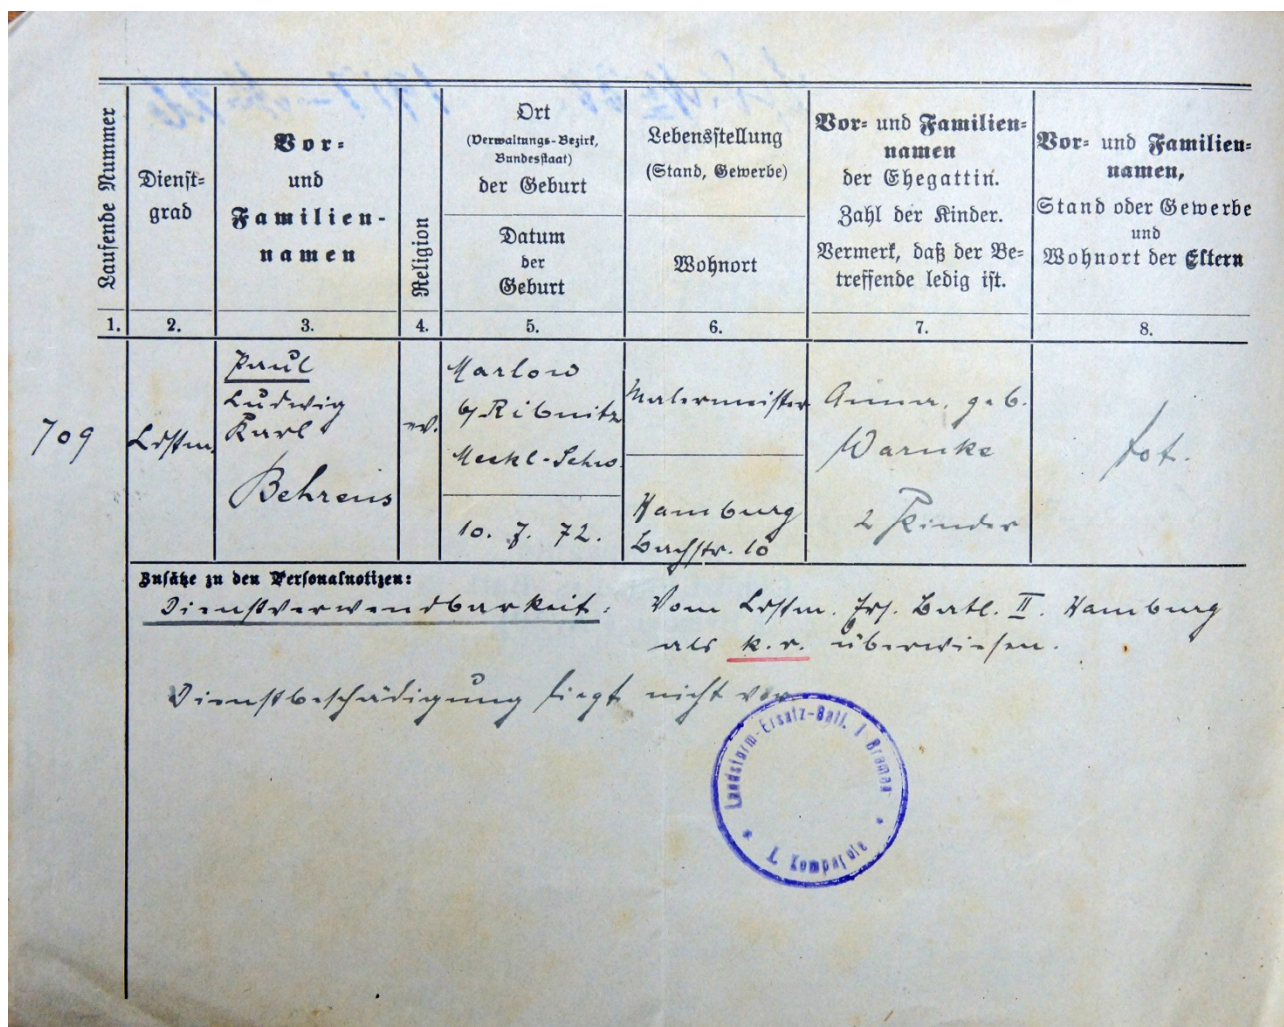 Laufende Nummer
Dienst-
grad
Vor-
und
Familien-
namen
Religion
Ort
(Verwaltungs-Bezirk,
Bundesstaat)
der Geburt
Datum
der
Geburt
Lebensstellung
(Stand, Gewerbe)
Wohnort
Vor- und Familien-
namen
der Ehegattin.
Zahl der Kinder.
Vermerk, daß der Be-
treffende ledig ist.
Vor- und Familien-
namen,
Stand oder Gewerbe
und
Wohnort der Eltern
1. 2. 3. 4. 5. 6. 7. 8.
709
Ldstm.
Paul
Ludwig
Karl
Behrens
ev.
Marlow
b/Ribnitz
Meckl-Schw.
10. 7. 72.
Malermeister
Hamburg
Bachstr. 10
Anna, geb.
Warnke
2 Kinder
tot.
Zusätze zu den Personalnotizen:
Dienstverwendbarkeit: Vom Ldstm. Ers. Batl. II. Hamburg
als k.v. überwiesen.
Dienstbeschädigung liegt nicht vor
Landsturm-Ersatz-Batl. I Bremen
* 1. Kompagnie *